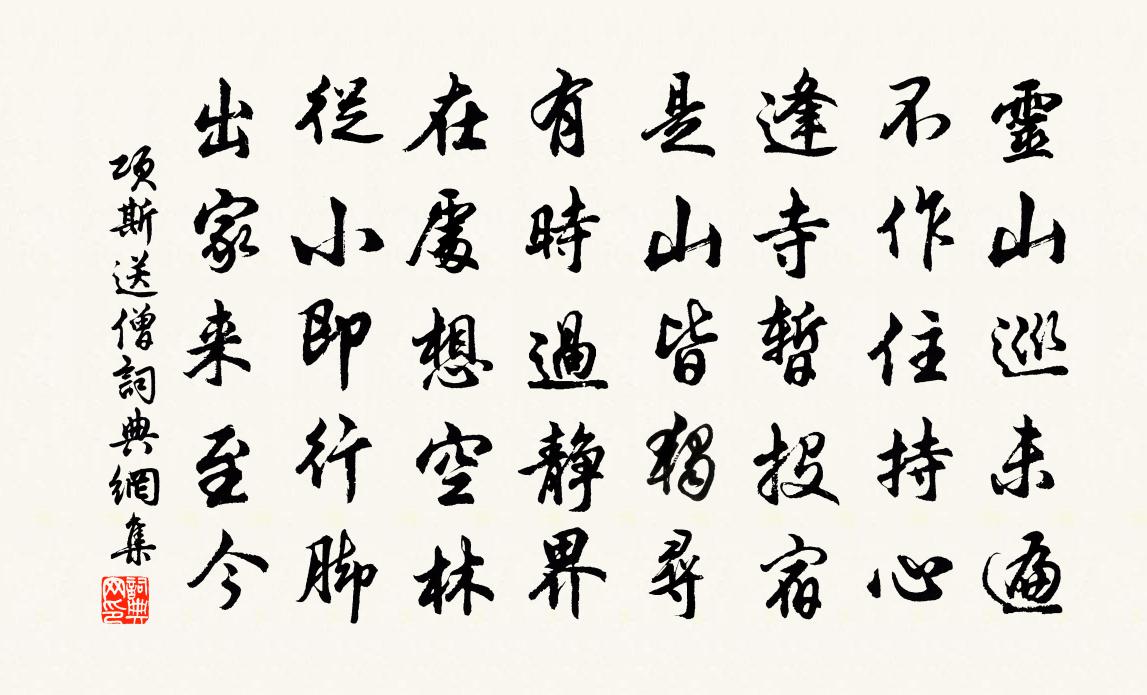 靈山巡未遍
不作住持心
逢寺暫投宿
是山皆獨尋
有時過静界
在處想空林
從小即行脚
出家来至今
項斯送僧詞典網集
詞典網印